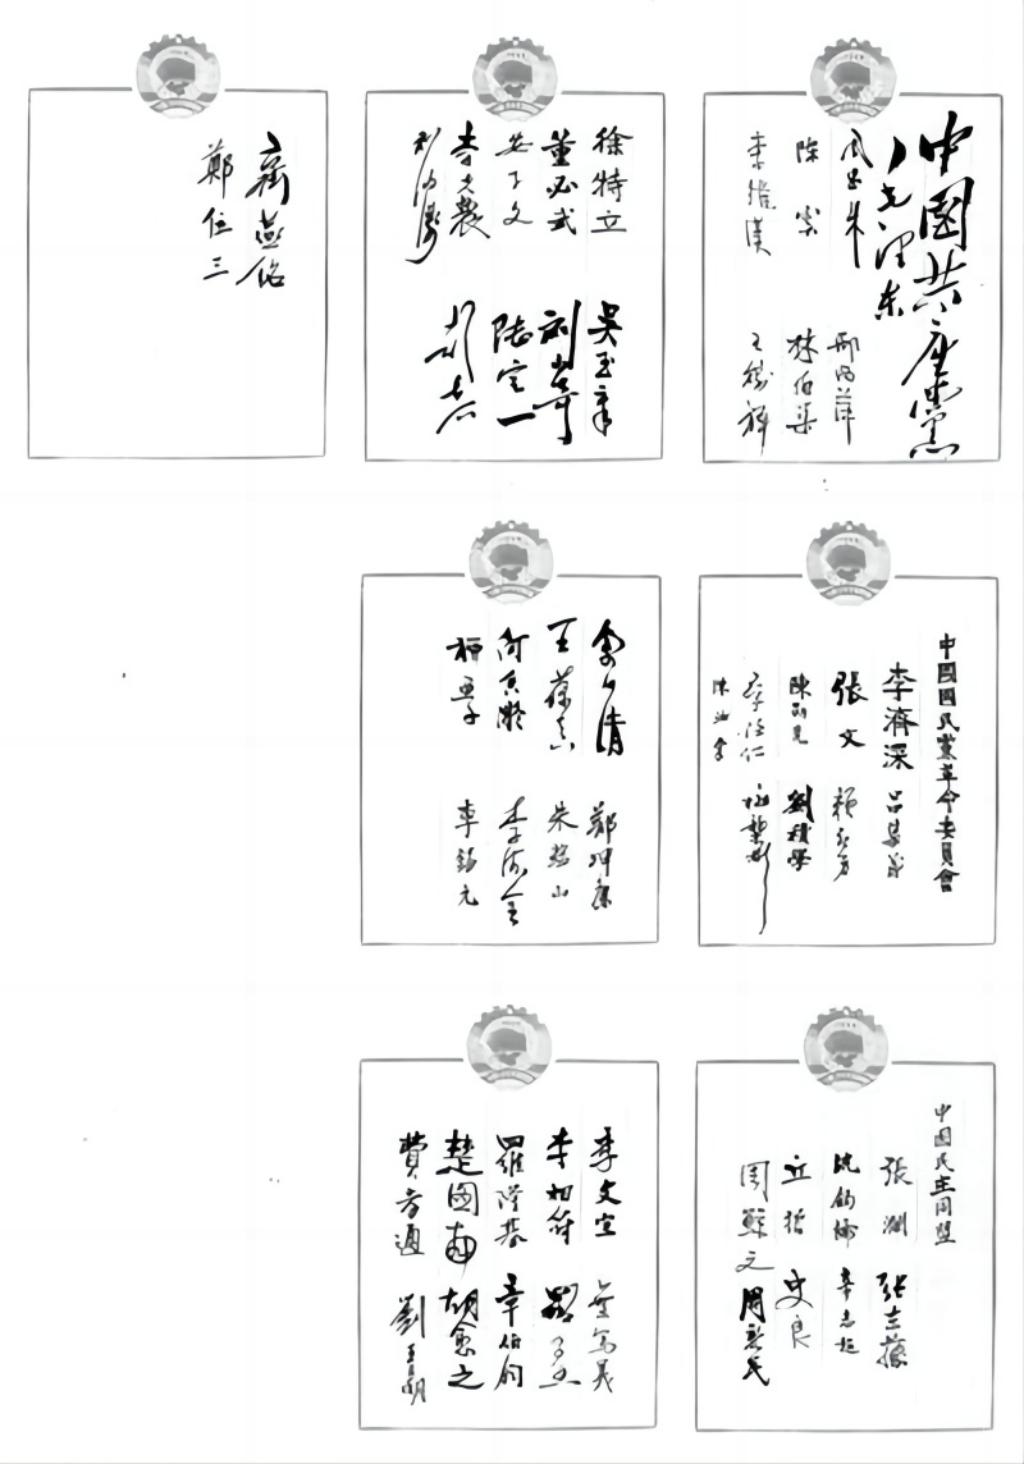 中國共產黨
毛澤東
周恩來
鄧小平
陳雲
林伯渠
李維漢
王稼祥
徐特立
吳玉章
董必武
劉少奇
安子文
陸定一
李克農
刘瀾濤
彭真
齊燕銘
鄭位三
中國國民黨革命委員會
李濟深
呂集義
張文
賴亞力
陳劭先
劉積學
李任仁
梅龔彬
陳汝棠
李世璋
鄭坤廉
王葆真
朱蘊山
何香凝
柳亞子
李錫九
中國民主同盟
張瀾
張志讓
沈鈞儒
辛志超
丘哲
史良
周鯨文
周新民
李文宜
李相符
羅隆基
章伯鈞
楚圖南
胡愈之
費孝通
劉王立明